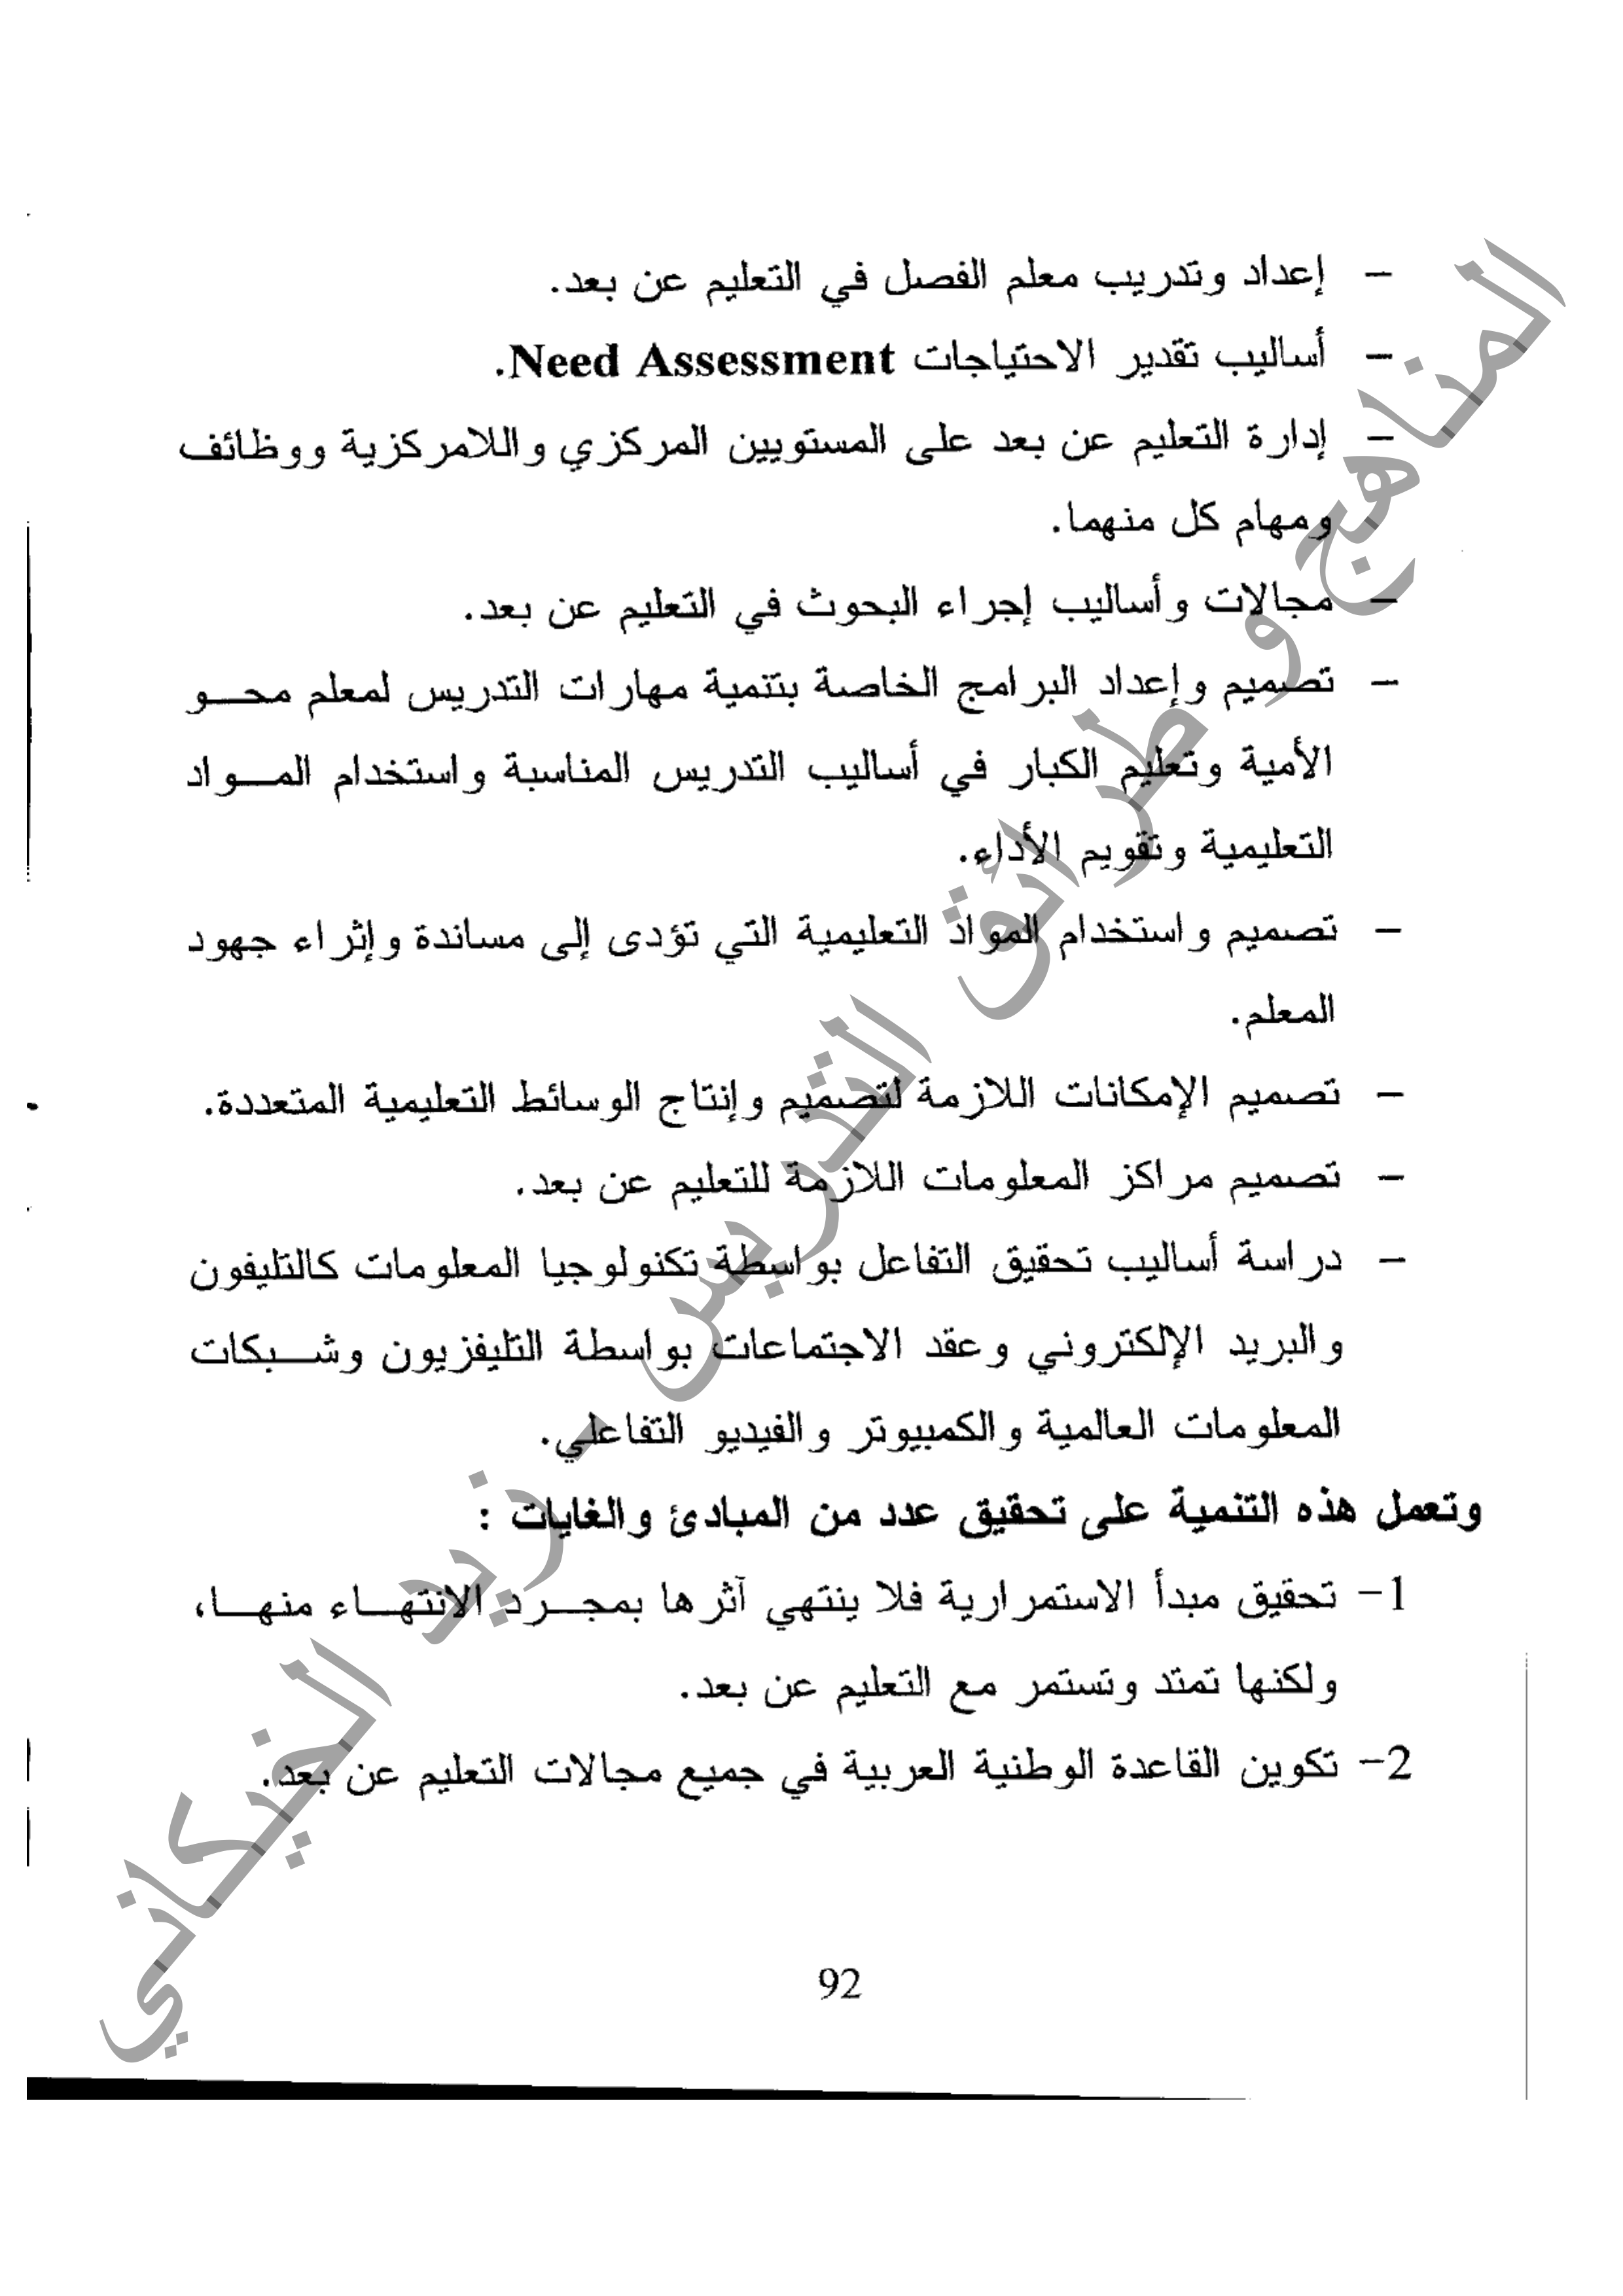 - إعداد وتدريب معلم الفصل في التعليم عن بعد.
- أساليب تقدير الاحتياجات Need Assessment.
- إدارة التعليم عن بعد على المستويين المركزي واللامركزية ووظائف
ومهام كل منهما.
- مجالات وأساليب إجراء البحوث في التعليم عن بعد.
- تصميم وإعداد البرامج الخاصة بتنمية مهارات التدريس لمعلم محو
الأمية وتعليم الكبار في أساليب التدريس المناسبة واستخدام المواد
التعليمية وتقويم الأداء.
- تصميم واستخدام المواد التعليمية التي تؤدى إلى مساندة وإثراء جهود
المعلم.
- تصميم الإمكانات اللازمة لتصميم وإنتاج الوسائط التعليمية المتعددة.
- تصميم مراكز المعلومات اللازمة للتعليم عن بعد.
- دراسة أساليب تحقيق التفاعل بواسطة تكنولوجيا المعلومات كالتليفون
والبريد الإلكتروني وعقد الاجتماعات بواسطة التليفزيون وشبكات
المعلومات العالمية والكمبيوتر والفيديو التفاعلي.
وتعمل هذه التنمية على تحقيق عدد من المبادئ والغايات :
1- تحقيق مبدأ الاستمرارية فلا ينتهي آثرها بمجرد الانتهاء منها،
ولكنها تمتد وتستمر مع التعليم عن بعد.
2- تكوين القاعدة الوطنية العربية في جميع مجالات التعليم عن بعد.
92
المناهج وطرائق التدريس - زيد الخيكاني